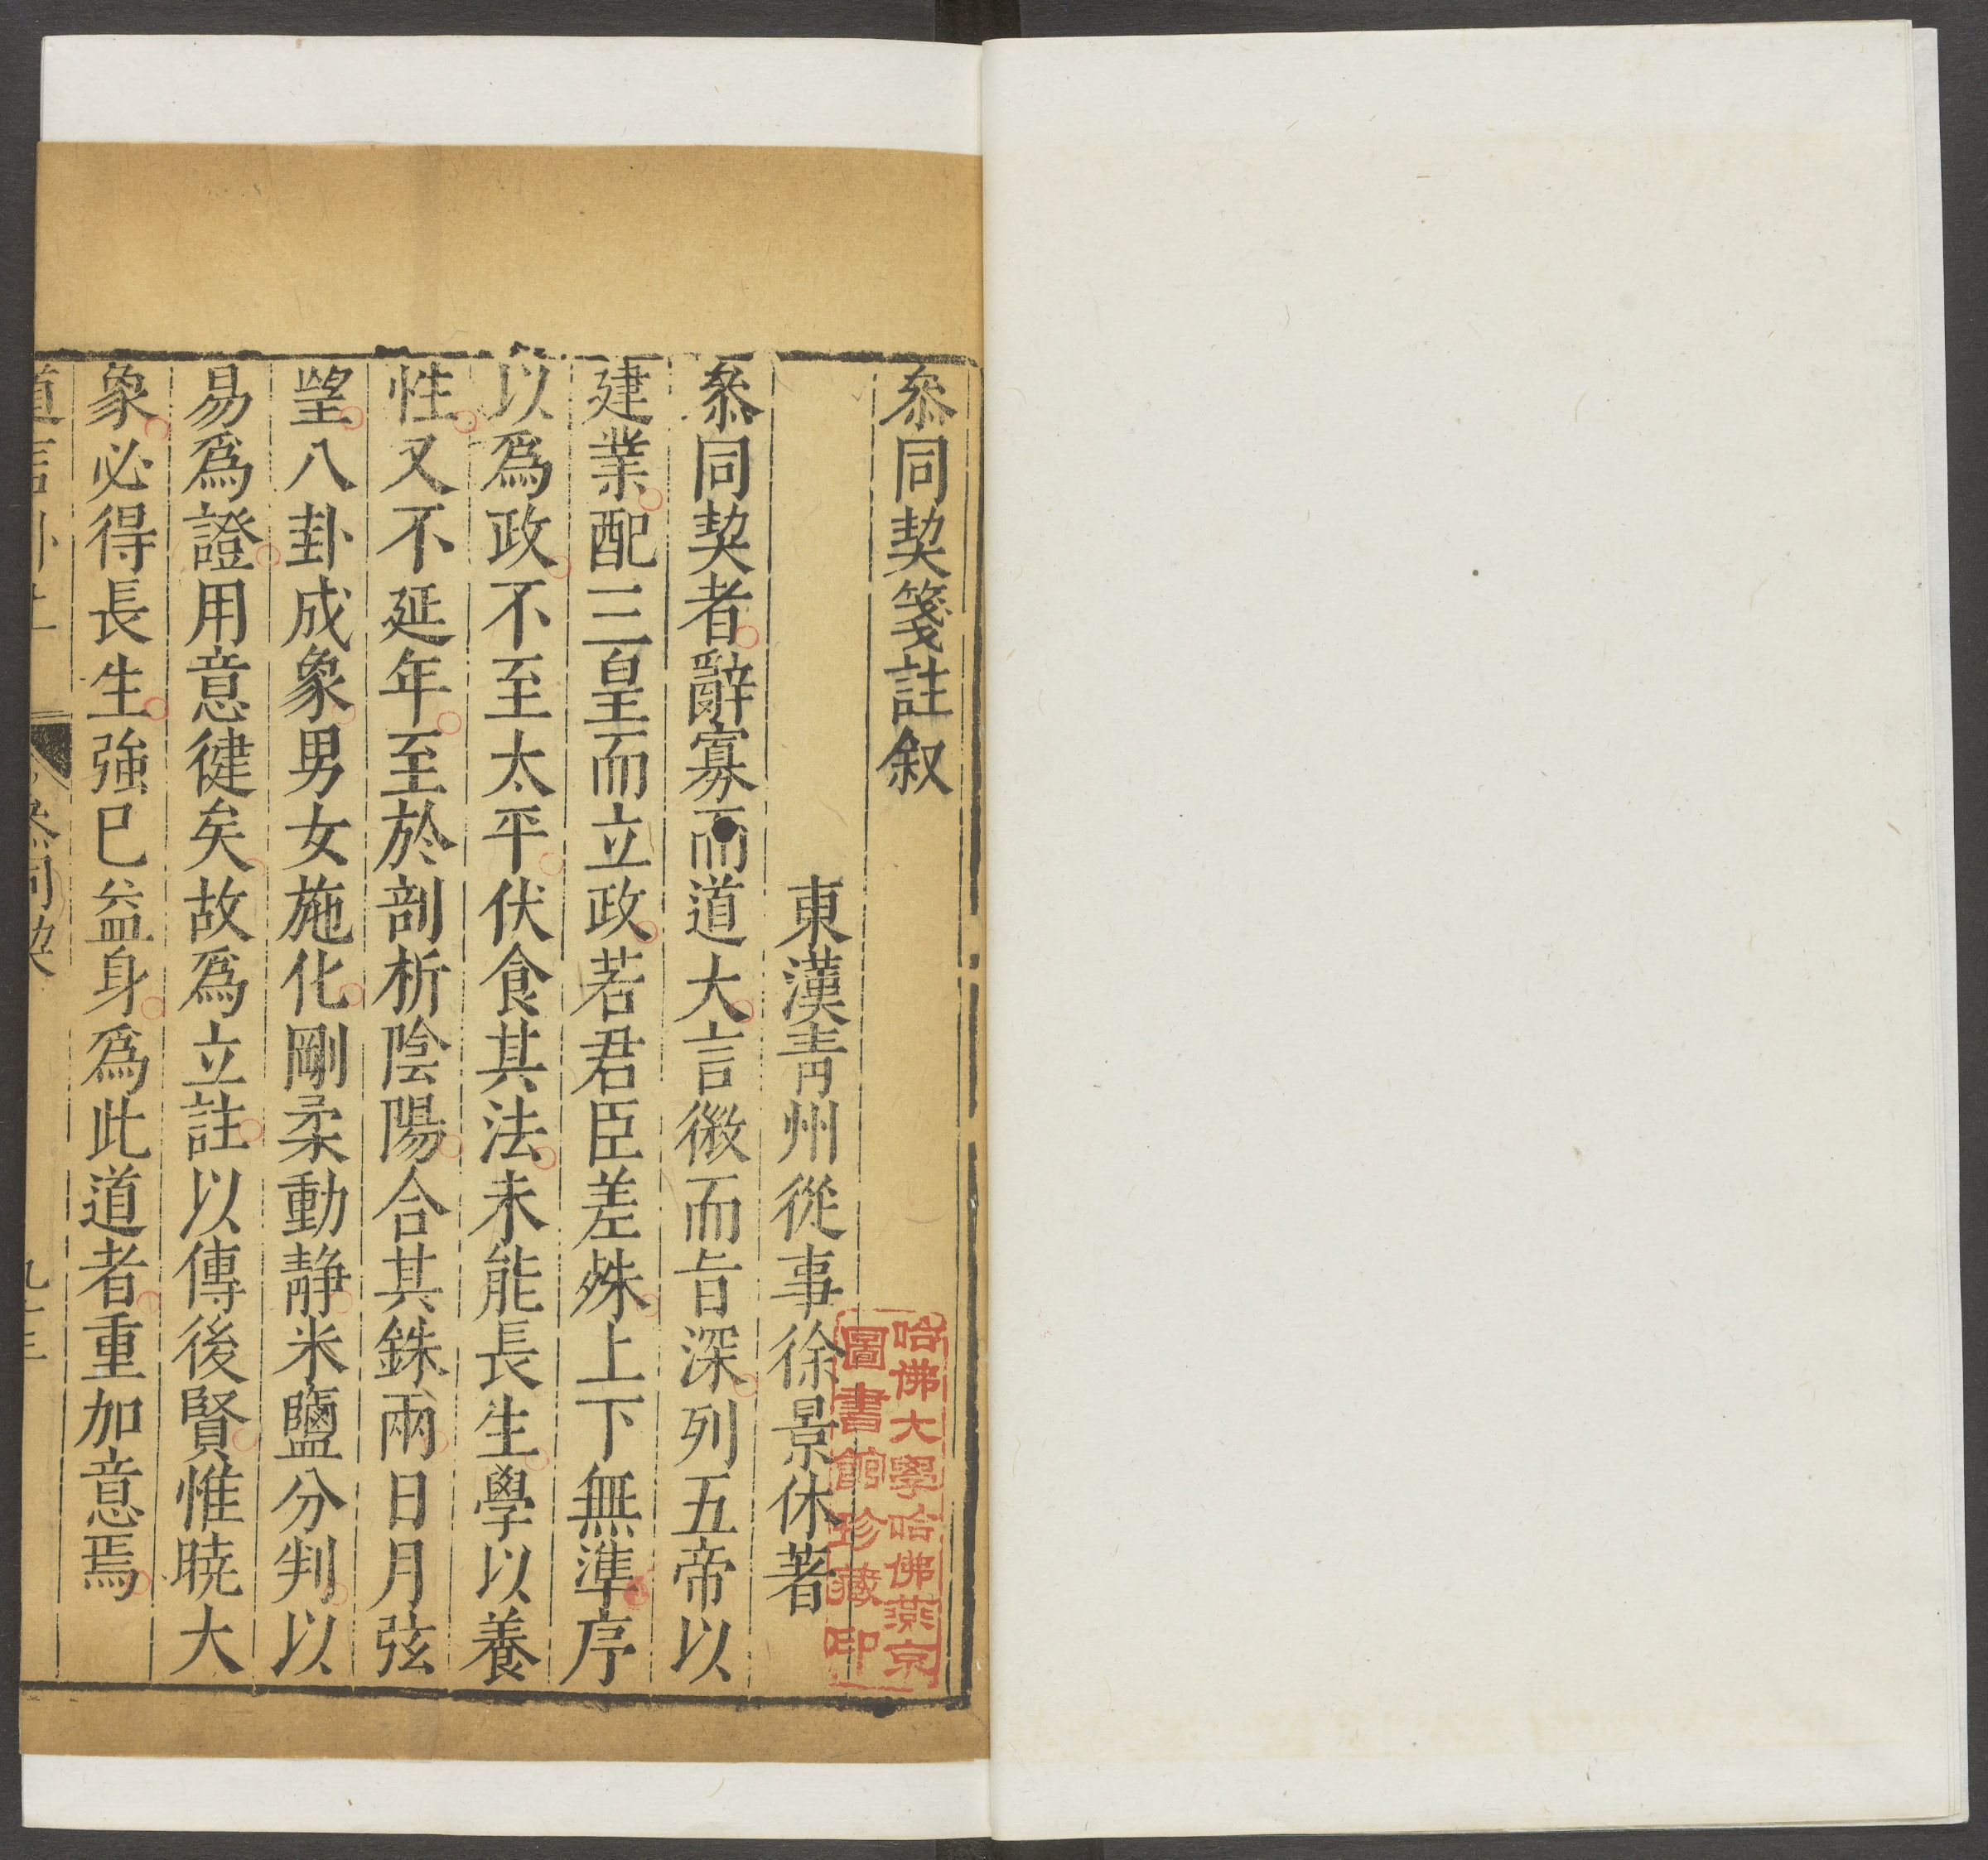 叅同契箋註叙
東漢青州從事徐景休著
叅同契者辭寡而道大言微而旨深列五帝以
建業配三皇而立政若君臣差殊上下無準序
以為政不至太平伏食其法未能長生學以養
性又不延年至於剖析陰陽合其銖兩日月弦
望八卦成象男女施化剛柔動靜米鹽分判以
易為證用意健矣故為立註以傳後賢惟曉大
象必得長生強已益身為此道者重加意焉
道言外
叅同契
哈佛大學哈佛燕京
圖書館珍藏印